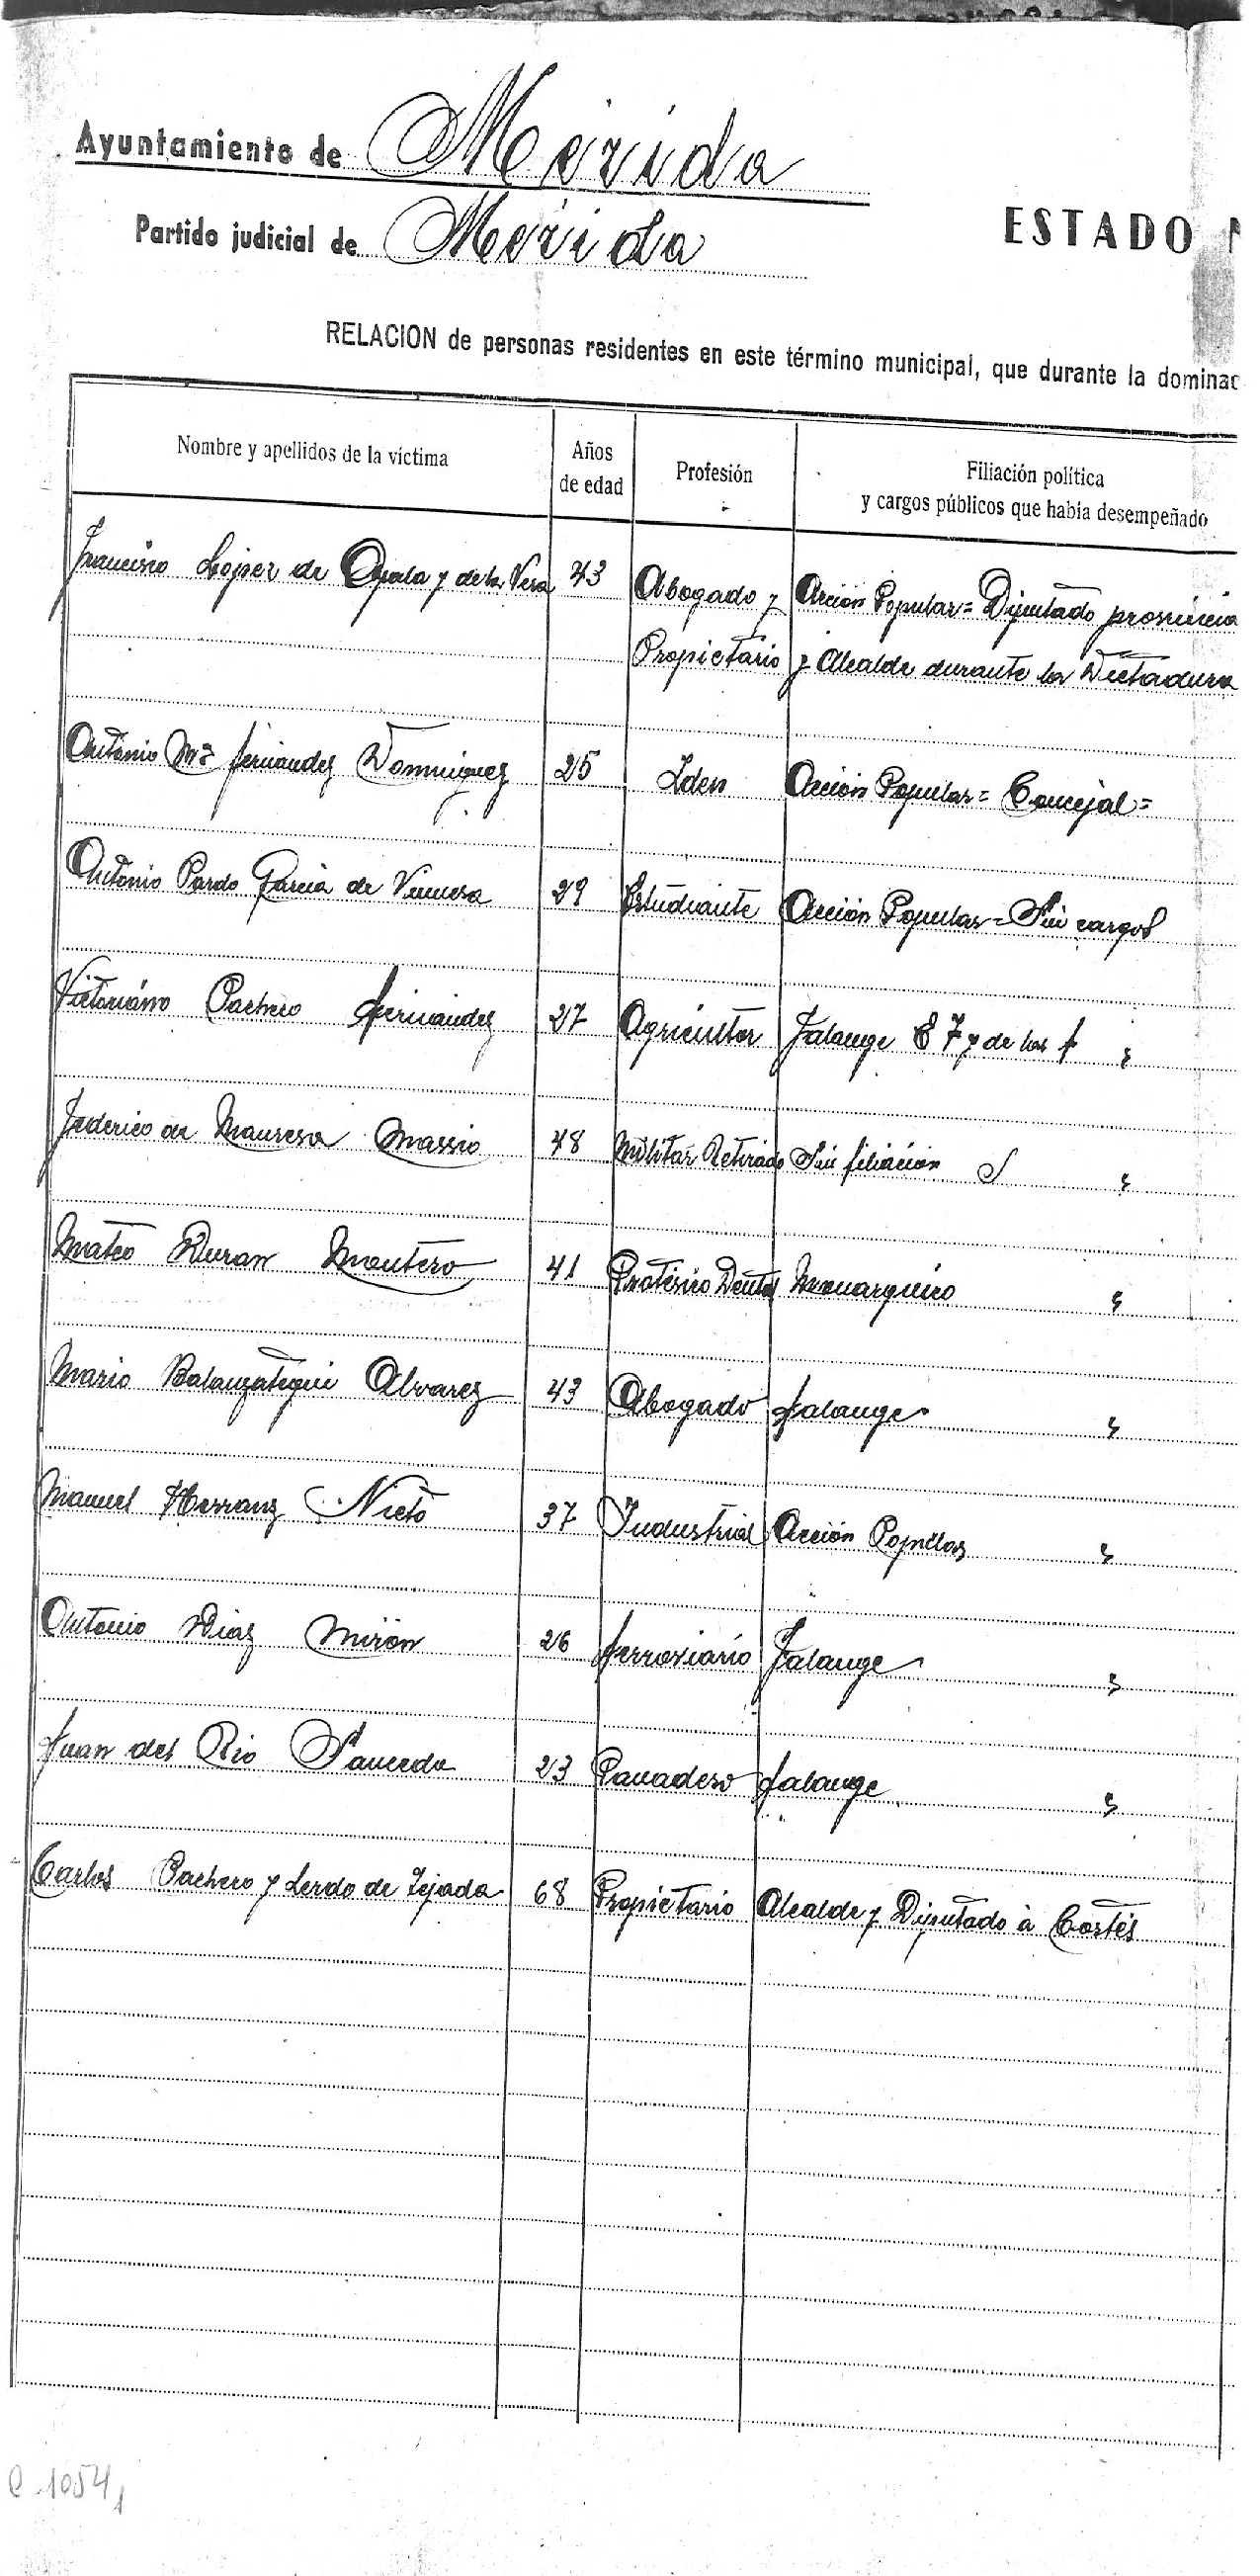 Ayuntamiento de Merida
Partido judicial de Merida
ESTADO
RELACION de personas residentes en este término municipal, que durante la dominac
Nombre y apellidos de la víctima
Años de edad
Profesión
Filiación política y cargos públicos que había desempeñado
Francisco López de Ayala y de la Vera 43 Abogado y Acción Popular = Diputado provincia
Propietario y Alcalde durante la Dictadura
Antonio Mª Fernandez Dominguez 25 Iden Acción Popular = Concejal =
Antonio Pardo Garcia de Vinuesa 29 Estudiante Acción Popular = Sin cargos
Victoriano Pacheco Fernandez 27 Agricultor Falange E T y de las J "
Federico de Manresa Massio 48 Militar Retirado Sin filiación "
Mateo Duran Montero 41 Protésico Dental Monarquico "
Mario Balanzategui Alvarez 43 Abogado Falange "
Manuel Herranz Nieto 37 Industrial Acción Popular "
Antonio Diaz Mirón 26 Ferroviario Falange "
Juan del Rio Sauceda 23 Panadero Falange "
Carlos Pacheco y Lerdo de Tejada 68 Propietario Alcalde y Diputado à Cortés
C 1054,1